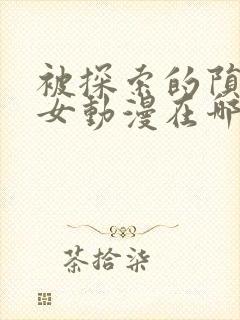 被探索的
女動漫在哪
茶拾柒